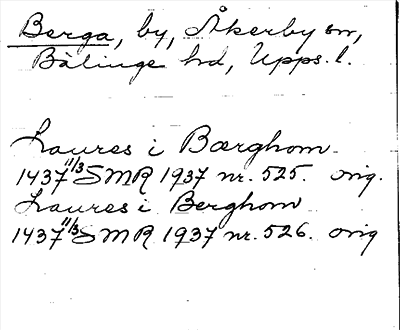 Berga, by, Åkerby sn,
Bälinge hd, Upps. l.
Laures i Bærghom
1437 11/3 SMR 1937 nr. 525. orig.
Laures i Berghom
1437 11/3 SMR 1937 nr. 526. orig